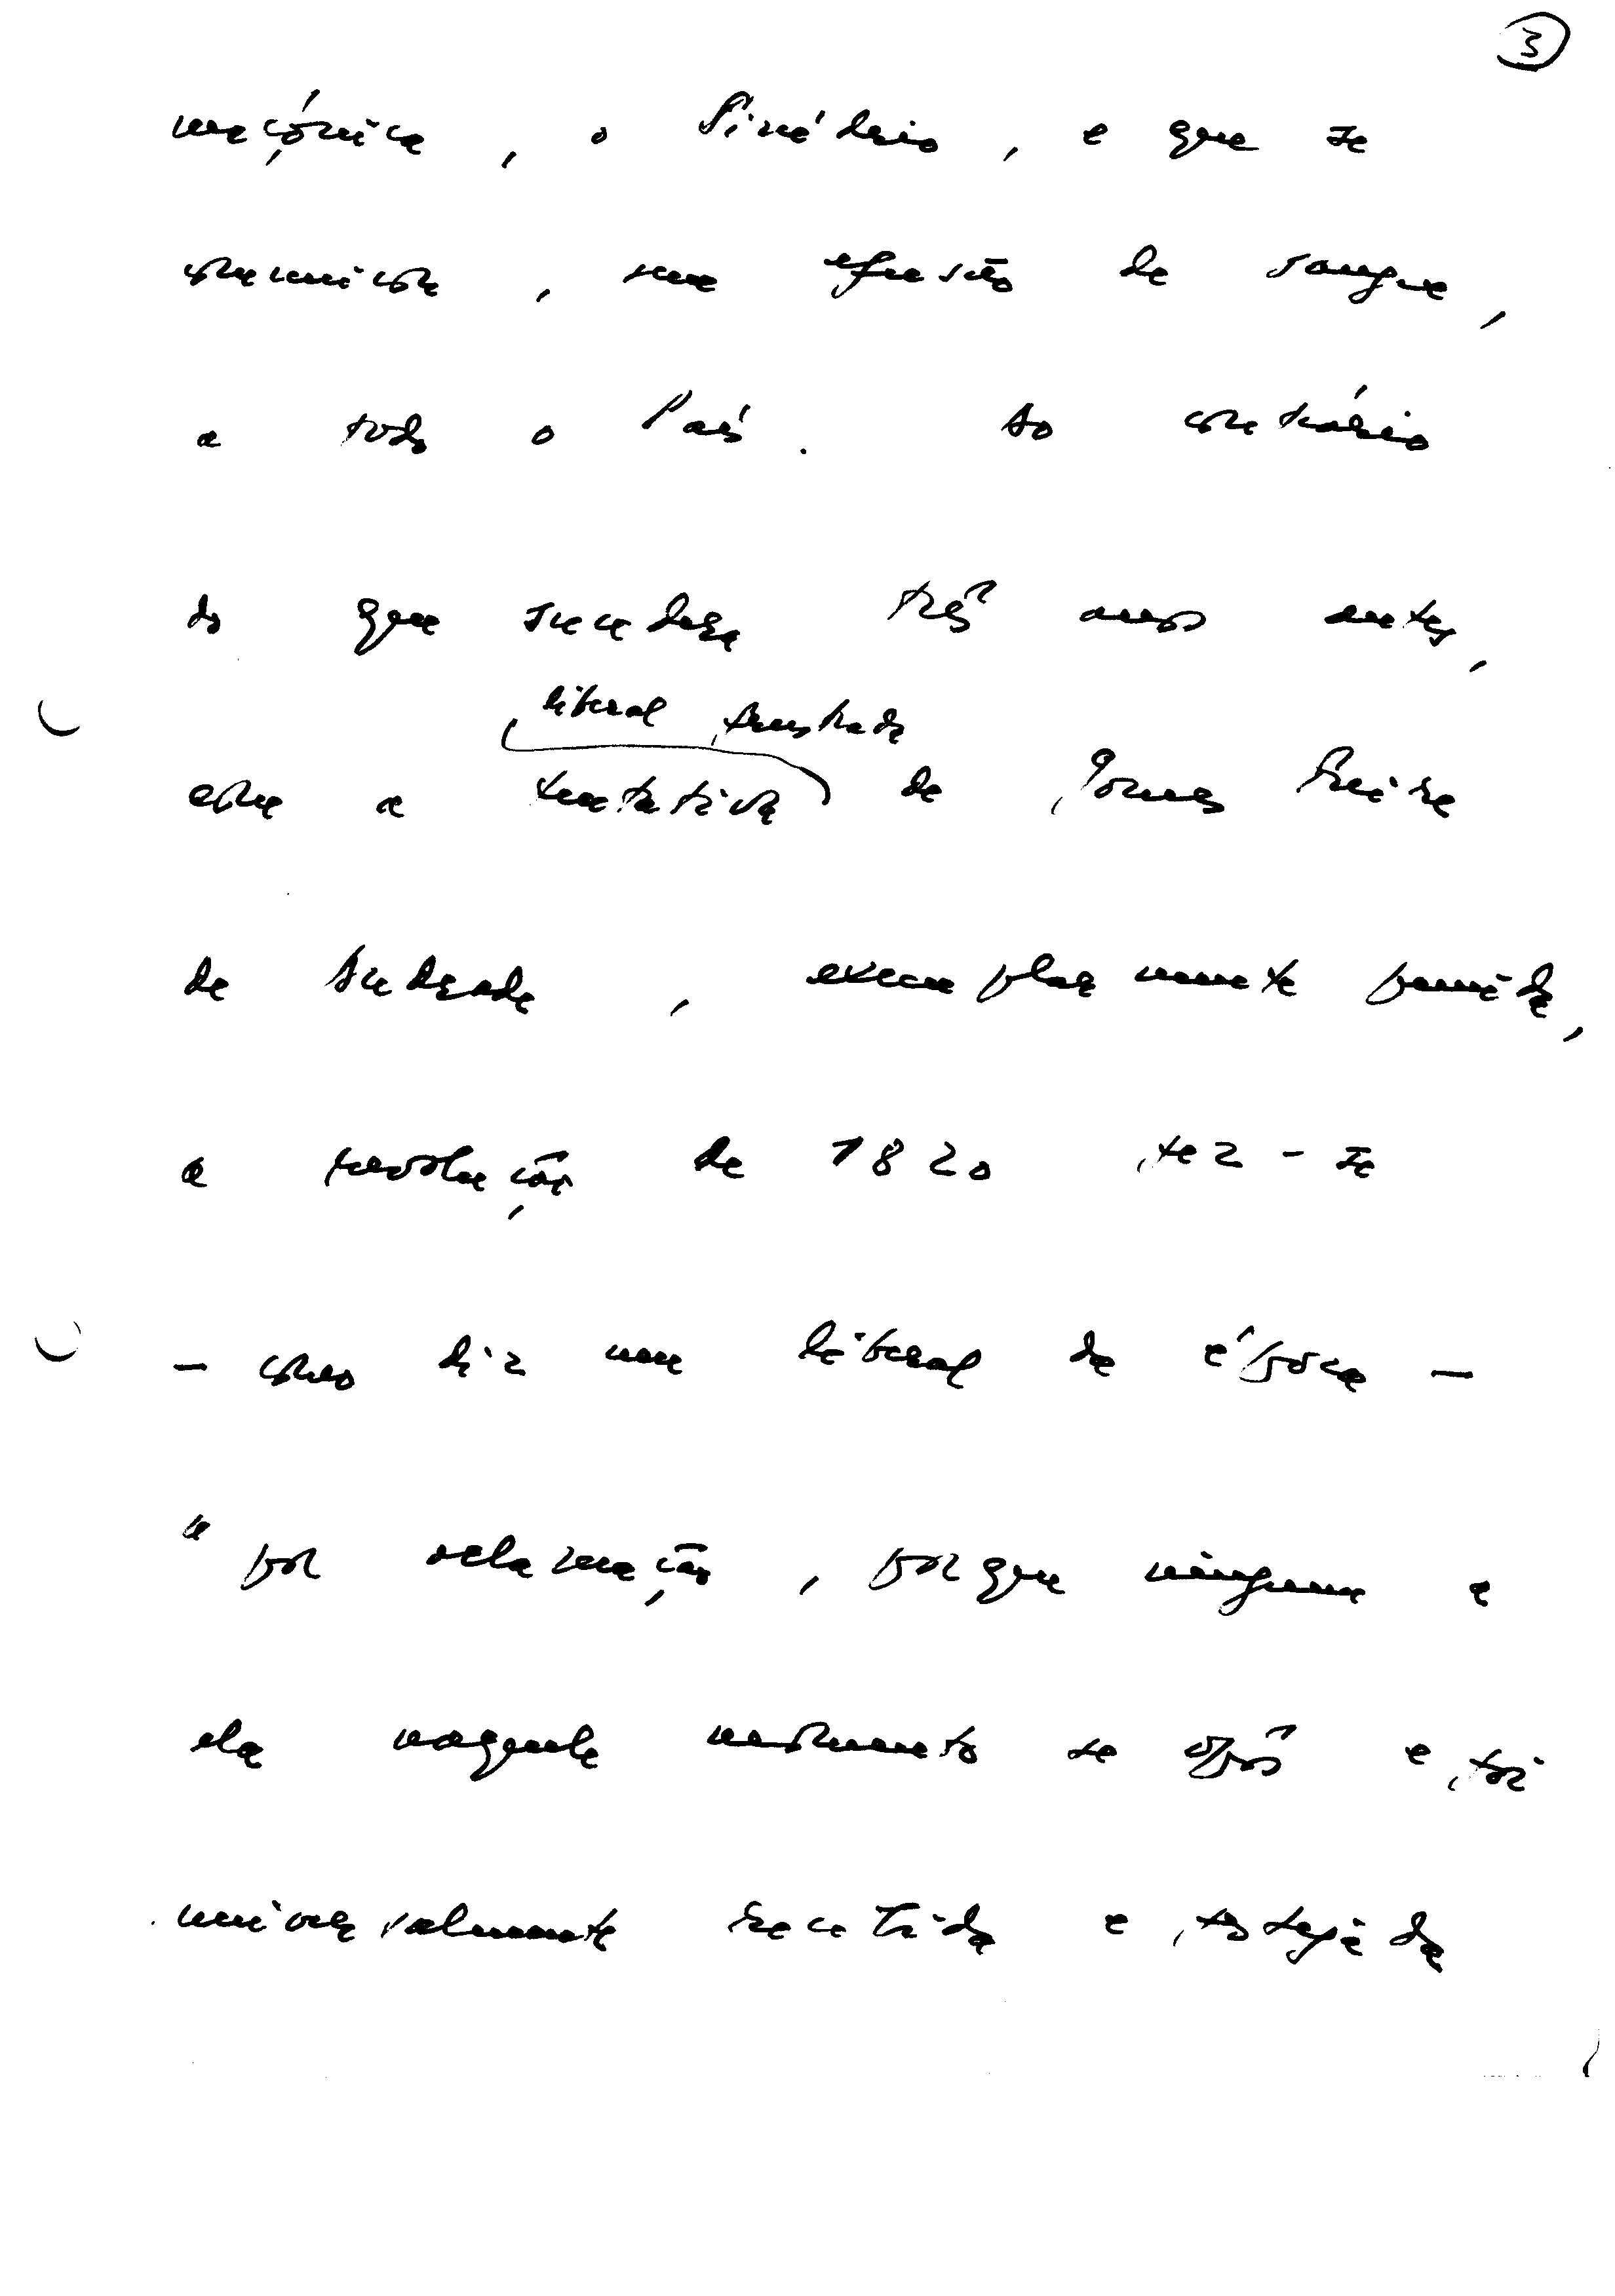 3
maçónica, o Sinédrio, e que se
comunicou, sem efusão de sangue,
a todo o País. Ao contrário
do que sucedera três anos antes,
liberal frustrada
com a tentativa de Gomes Freire
de Andrade, exemplarmente punida,
a revolução de 1820 fez-se
— como diz um liberal da época —
"por aclamação, porque ninguém a
ela naquele momento se opôs e foi
universalmente recebida e festejada